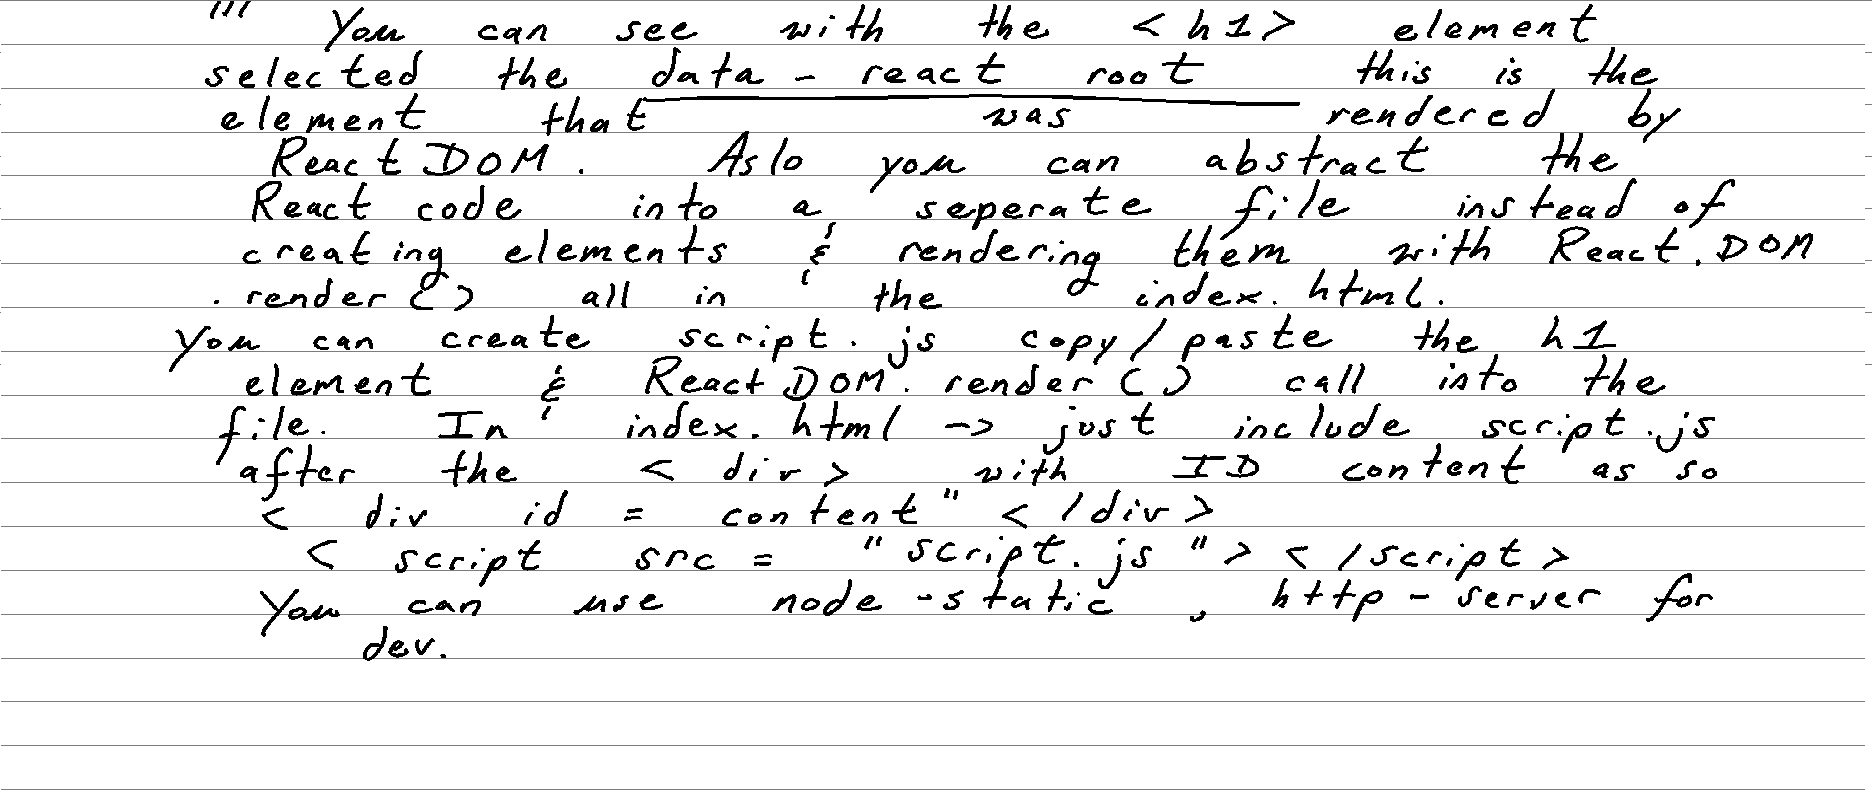 ''' You can see with the <h1> element
selected the data - react root this is the
element that was rendered by
React DOM. Aslo you can abstract the
React code into a seperate file instead of
creating elements & rendering them with React.DOM
.render() all in the index.html.
You can create script.js copy/paste the h1
element & React DOM.render() call into the
file. In index.html -> just include script.js
after the <div> with ID content as so
< div id = content" < /div>
< script src = "script.js"> < /script>
You can use node-static, http-server for
dev.